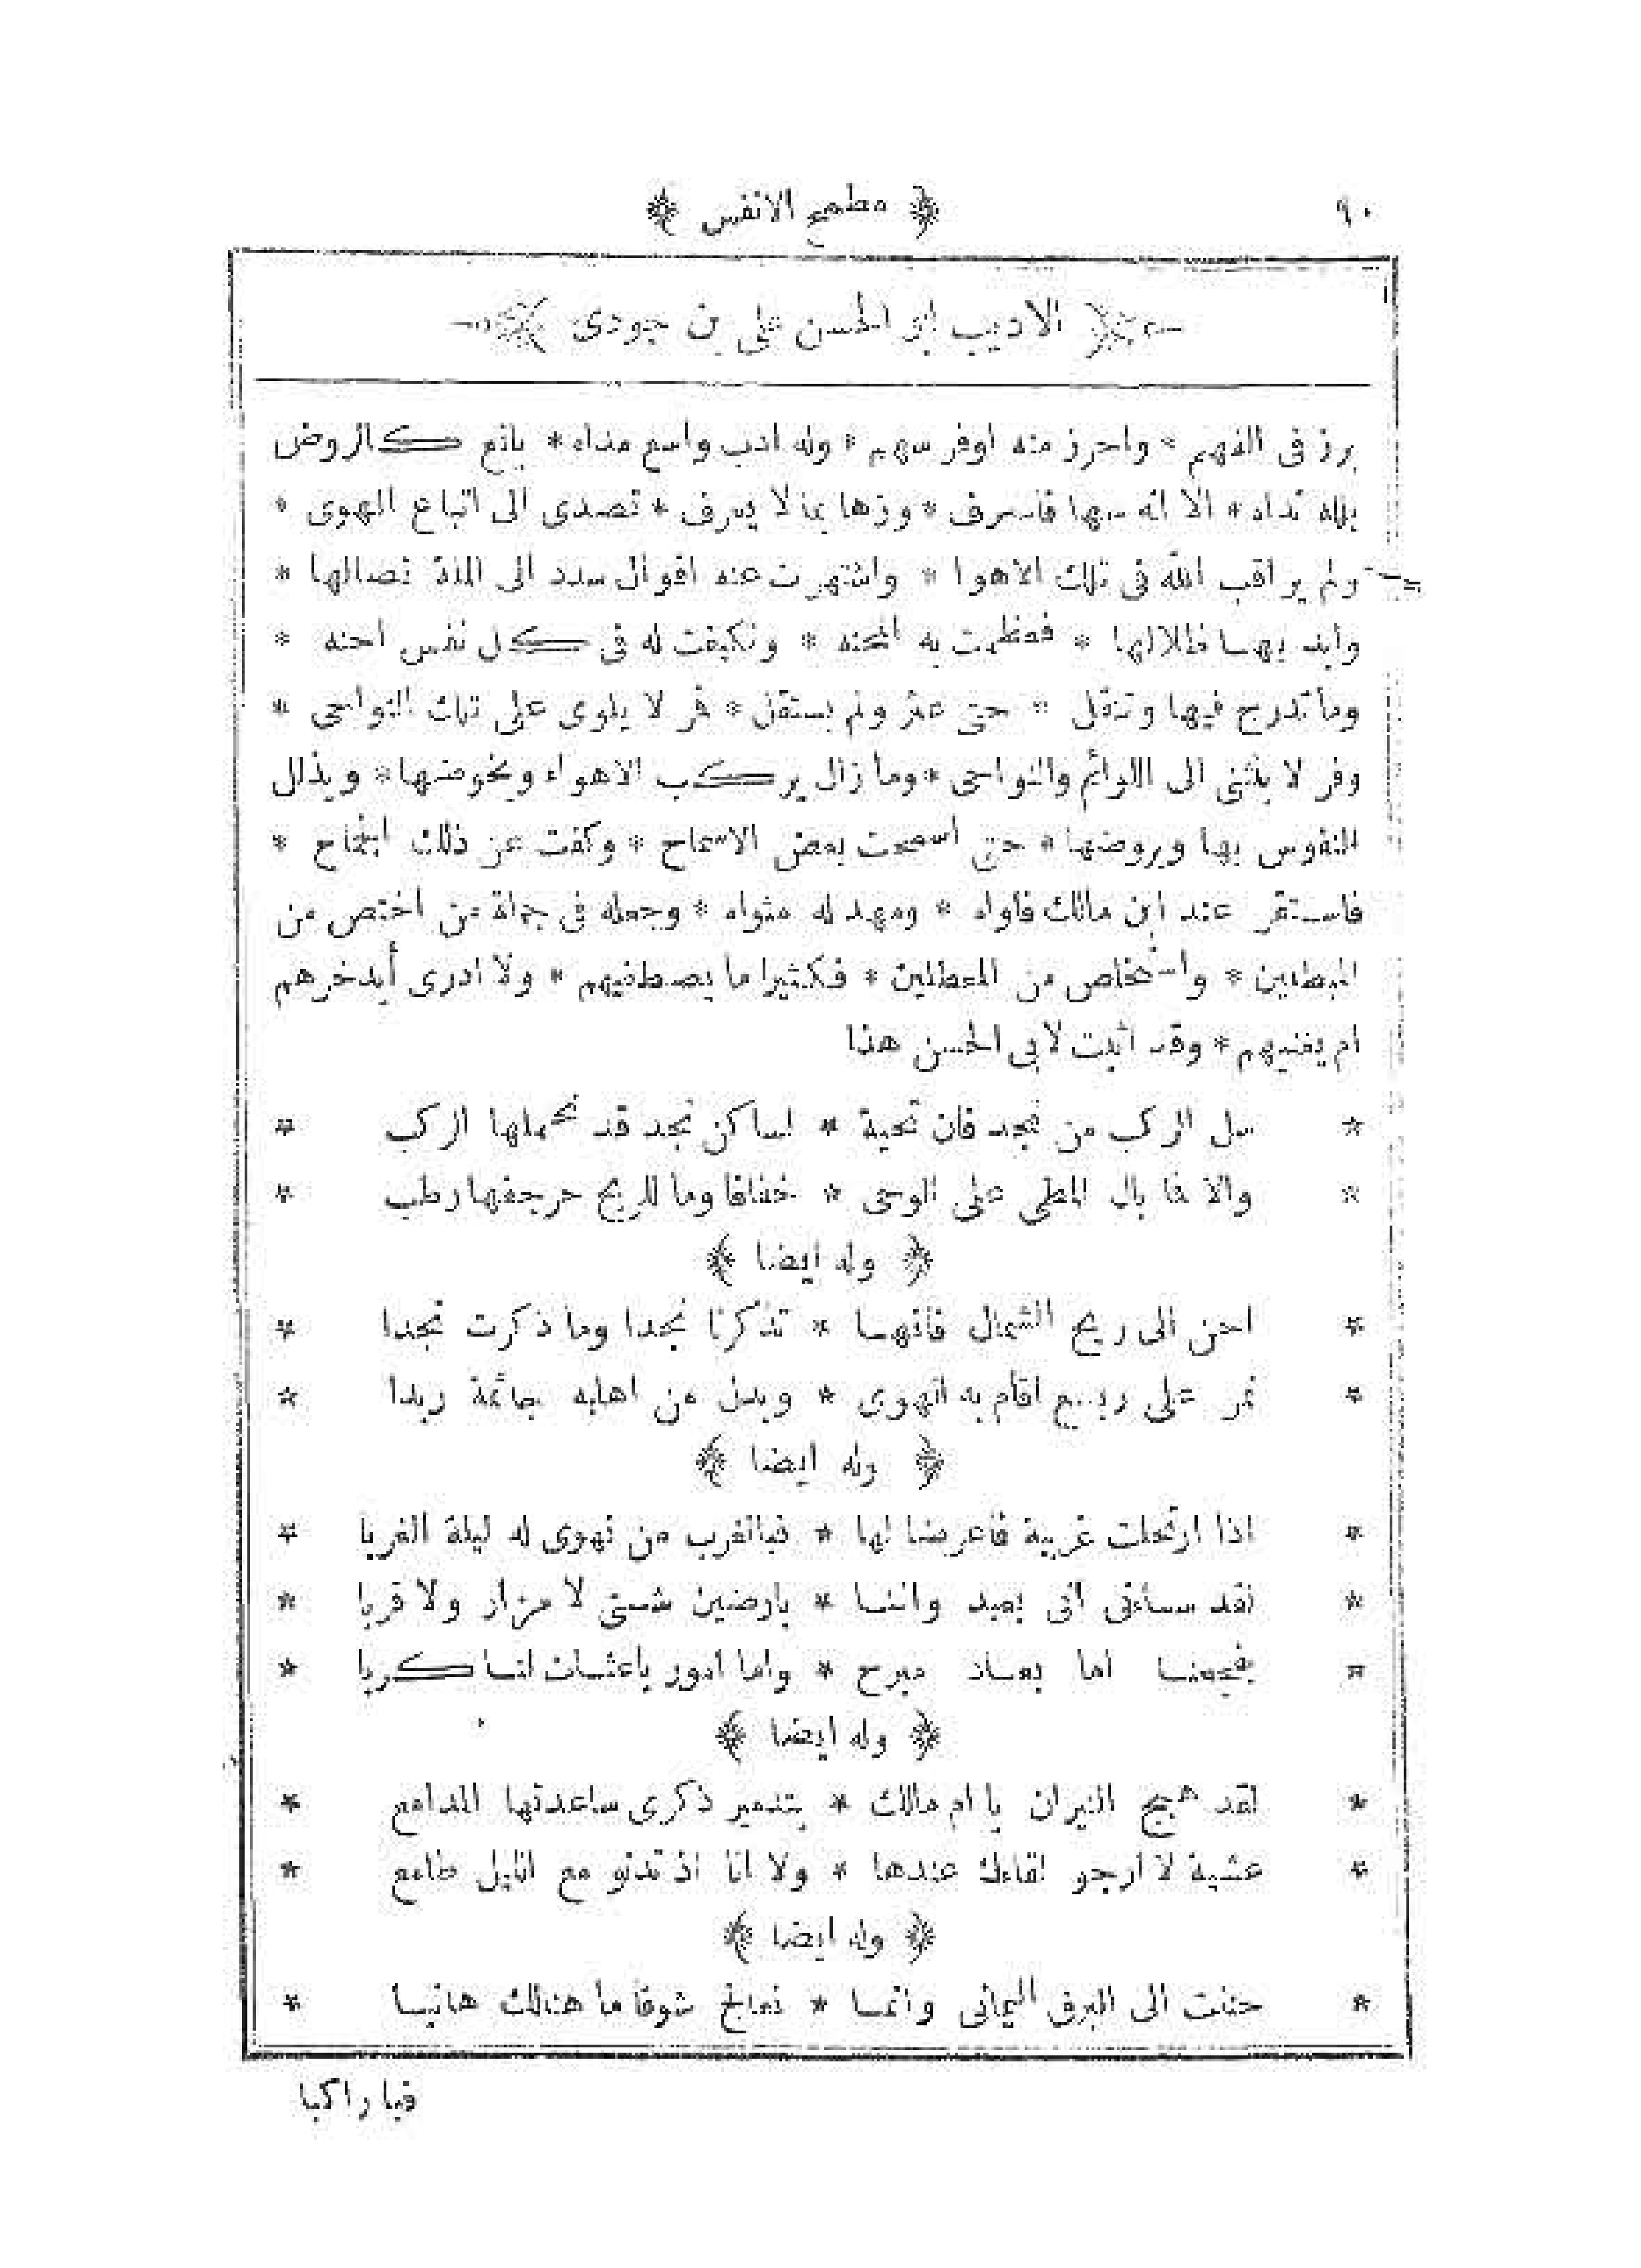 ٩٠
﴿ مطمح الانفس ﴾
﴿ الاديب ابو الحسن على بن جودى ﴾
برز فى الفهم * واحرز منه اوفر سهم * وله ادب واسع مداه * يانع كالروض
بلله نداه * الا انه سها فاسرف * وزها بما لا يعرف * تصدى الى اتباع الهوى *
ولم يراقب الله فى تلك الاهوا * واشتهرت عنه اقوال سدد الى الملة نصالها *
وابد بها ظلالها * فعظمت به المحنه * وتكيفت له فى كل نفس احنه *
وما تدرج فيها وتنقل * حتى عثر ولم يستقل * فر لا يلوى على تلك النواحى *
وفر لا ينثنى الى اللوائم والنواحى * وما زال يركب الاهواء ويخوضها * ويذلل
النفوس بها ويروضها * حتى اسمحت بعض الاسماح * وكفت عن ذلك الجماح *
فاستقر عند ابن مالك فاواه * ومهد له مثواه * وجعله فى جملة من اختص من
المبطلين * واستخلص من المعطلين * فكثيرا ما يصطفيهم * ولا ادرى أيدخرهم
ام يفنيهم * وقد اثبت لابى الحسن هذا
* سل الركب من نجد فان تحية * لساكن نجد قد تحملها الركب *
* والا فما بال المطى على الوجى * خفافا وما للريح مرجفها رطب *
﴿ وله ايضا ﴾
* احن الى ريح الشمال فانها * تذكرنا نجدا وما ذكرت نجدا *
* تمر على ربع اقام به الهوى * وبدل من اهليه جاثمة ربدا *
﴿ وله ايضا ﴾
* اذا ارتحلت غربية فاعرضا لها * فبالغرب من نهوى له ليلة الغربا *
* لقد ساءنى انى بعيد واننا * بارضين شتى لا مزار ولا قربا *
* يفجعنا اما بعاد مبرح * واما امور باعثات لنا كربا *
﴿ وله ايضا ﴾
* لقد هيج النيران يا ام مالك * بتدمير ذكرى ساعدتها المدامع *
* عشية لا ارجو لقاءك عندها * ولا انا اذ تدنو مع الليل طامع *
﴿ وله ايضا ﴾
* حننت الى البرق اليمانى وانما * نعالج شوقا ما هنالك هانيا *
فيا راكبا